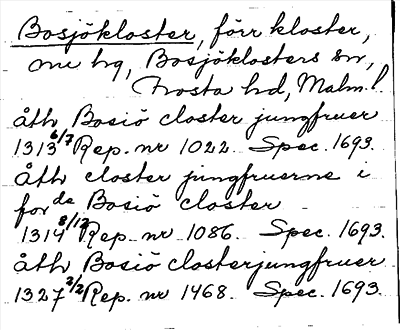 Bosjökloster, förr kloster,
nu hg, Bosjöklosters sn,
Frosta hd, Malm. l.
åth Bosiö closter jungfruer
1313 6/7 Rep. nr 1022. Spec. 1693.
Åth closter jungfruerne i
for de Bosiö closter
1314 8/12 Rep. nr 1086. Spec. 1693.
åth Bosiö closterjungfruer
1327 2/2 Rep. nr 1468. Spec. 1693.